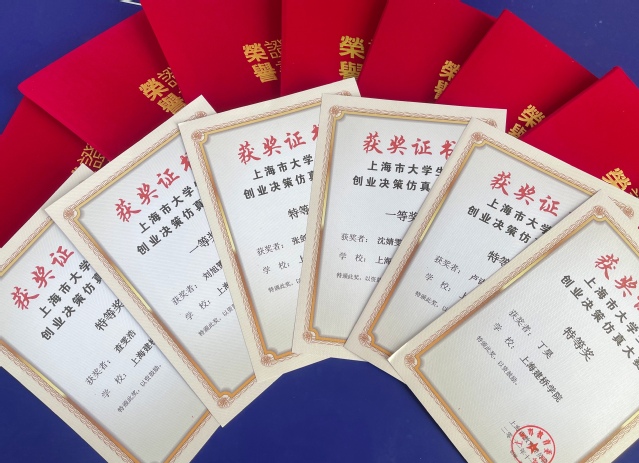 榮譽
證
榮譽
證
榮譽
證
榮譽
榮譽
榮
获奖证
上海市大学
创业决策仿真
特等奖
获奖者：查雯浩
学 校：上海建
特颁此奖，以资鼓励。
获奖证
上海市大学
创业决策仿真
一等奖
获奖者：刘旭
学 校：上海
特颁此奖，以资鼓励
获奖证书
上海市大学生
创业决策仿真
特等奖
获奖者：张
学 校：上
特颁此奖，以资
获奖证书
上海市大学生
创业决策仿真
一等奖
获奖者：沈婧雯
学 校：上海
特颁此奖，以资鼓
获奖证
上海市大学
创业决策仿真
特等奖
获奖者：
学 校：上
特颁此奖，以资
获奖
上海市大学生
创业决策仿真大
特等奖
获奖者：丁昊
学 校：上海建桥学院
特颁此奖，以资鼓励。